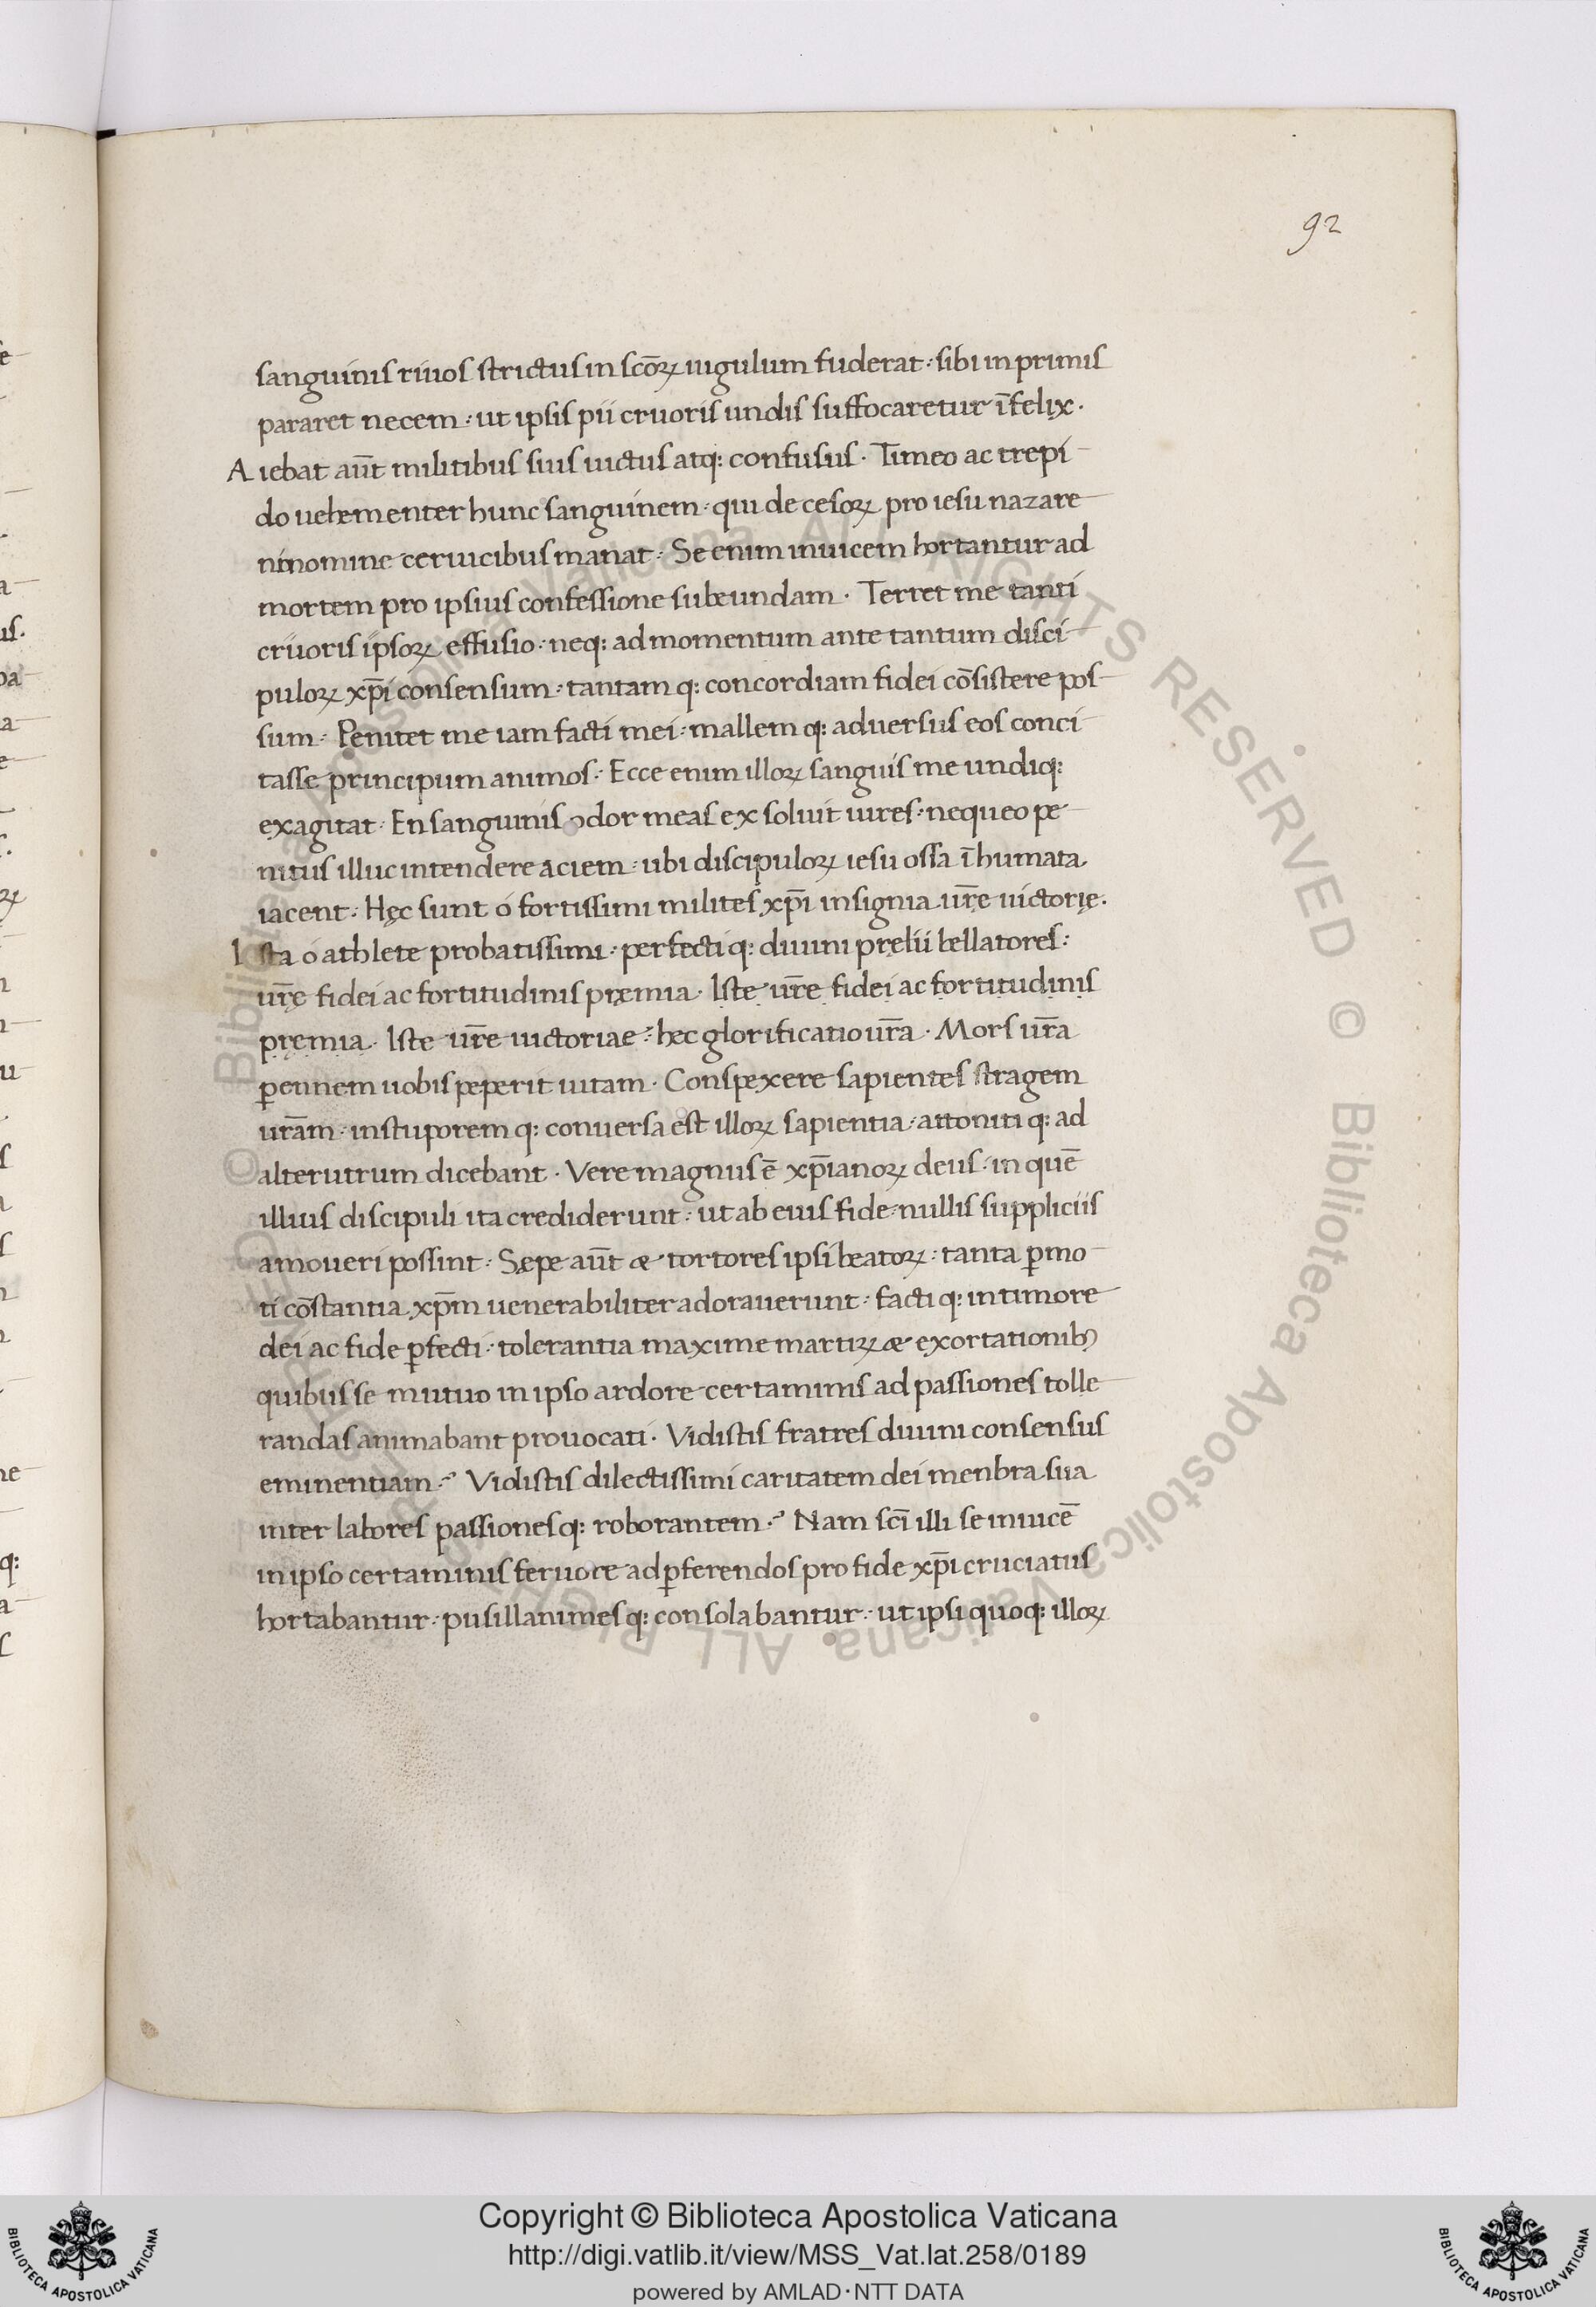 92
sanguinis riuos strictus in scōꝝ iugulum fuderat · sibi in primis
pararet necem · ut ipsis pii cruoris undis suffocaretur īfelix ·
Aiebat aūt militibus suis uictus atq: confusus · Timeo ac trepi
do uehementer hunc sanguinem · qui de cesoꝝ pro iesu nazare
ni nomine ceruicibus manat · Se enim inuicem hortantur ad
mortem pro ipsius confessione subeundam · Terret me tanti
cruoris ipsoꝝ effusio · neq: ad momentum ante tantum disci
puloꝝ xp̄i consensum · tantam q: concordiam fidei cōsistere pos
sum · Penitet me iam facti mei · mallem q: aduersus eos conci
tasse principum animos · Ecce enim illoꝝ sanguis me undiq:
exagitat · En sanguinis odor meas exsoluit uires · nequeo pe
nitus illuc intendere aciem · ubi discipuloꝝ iesu ossa īhumata
iacent · Hęc sunt o fortissimi milites xp̄i insignia ur̄e uictorię ·
Ista o athlete probatissimi · perfecti q: diuini prelii bellatores :
ur̄ę fidei ac fortitudinis pręmia · Iste ur̄e fidei ac fortitudinis
pręmia · Iste ur̄e uictoriae · hec glorificatio ur̄a · Mors ur̄a
p̱ennem uobis peperit uitam · Conspexere sapientes stragem
ur̄am · in stuporem q: conuersa est illoꝝ sapientia · attoniti q: ad
alterutrum dicebant · Vere magnus ē xp̄ianoꝝ deus · in quē
illius discipuli ita crediderunt · ut ab eius fide nullis suppliciis
amoueri possint · Sępe aūt & tortores ipsi beatoꝝ · tanta p̱mo
ti cōstantia xp̄m uenerabiliter adorauerunt · facti q: in timore
dei ac fide p̱fecti · tolerantia maxime martiꝝ & exortationibꝰ
quibus se mutuo in ipso ardore certaminis ad passiones tolle
randas animabant prouocati · Vidistis fratres diuini consensus
eminentiam · Vidistis dilectissimi caritatem dei menbra sua
inter labores passionesq: roborantem · Nam scī illi se inuicē
in ipso certaminis feruore ad p̱ferendos pro fide xp̄i cruciatus
hortabantur · pusillanimes q: consolabantur · ut ipsi quoq: illoꝝ
© Biblioteca Apostolica Vaticana ALL RIGHTS RESERVED © Biblioteca Apostolica Vaticana ALL RIGHTS RESERVED
Copyright © Biblioteca Apostolica Vaticana
http://digi.vatlib.it/view/MSS_Vat.lat.258/0189
powered by AMLAD · NTT DATA
BIBLIOTECA APOSTOLICA VATICANA
BIBLIOTECA APOSTOLICA VATICANA